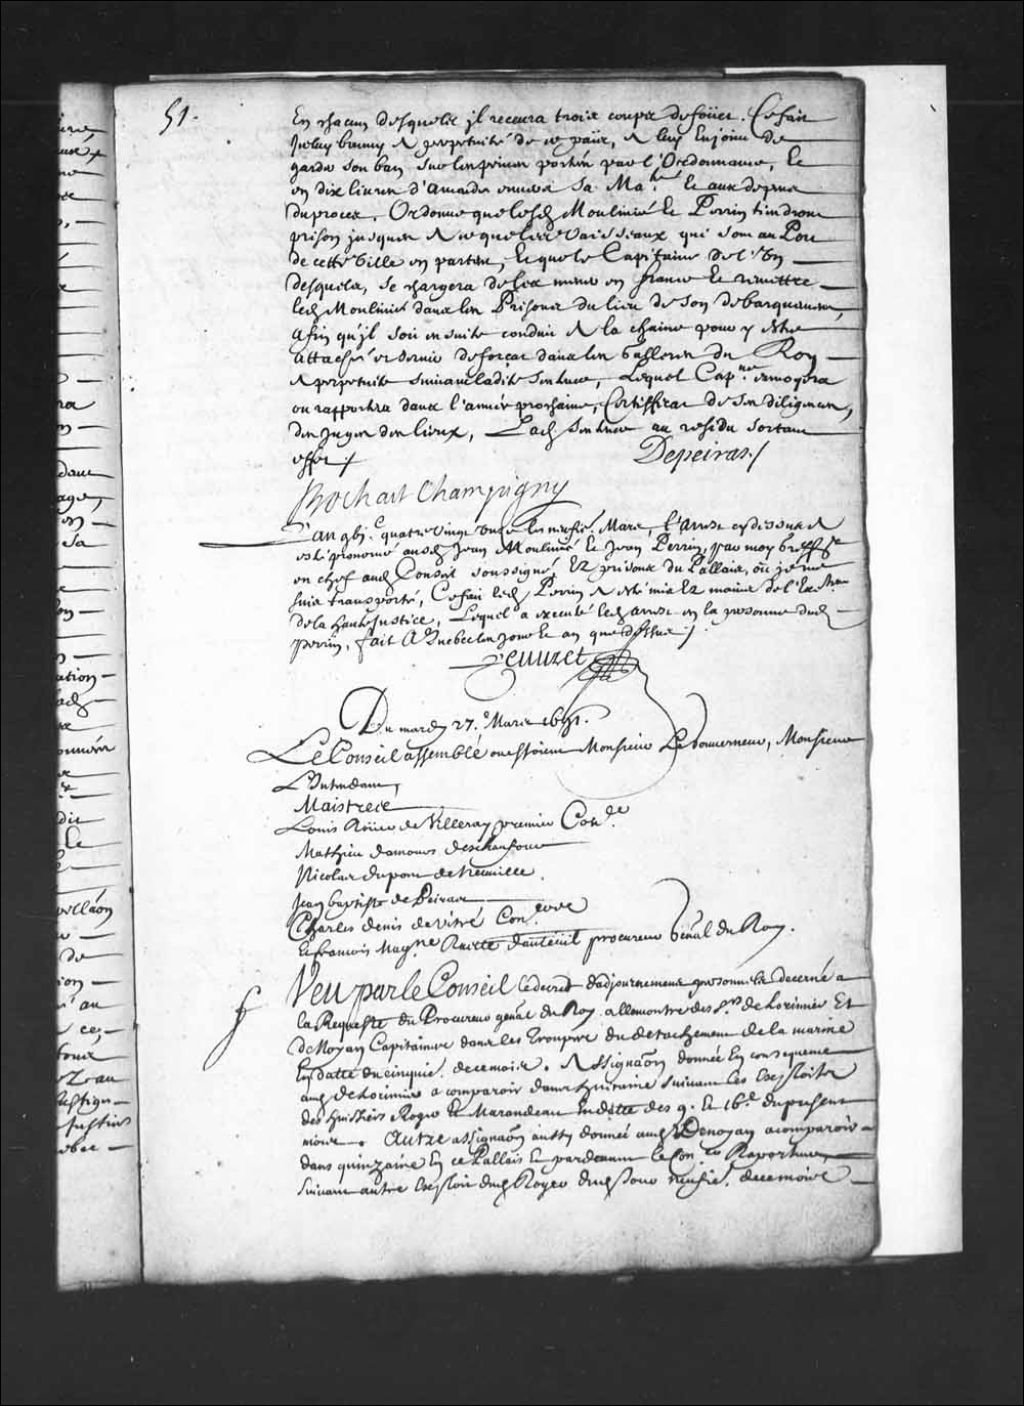 51.
En chacun desquelz jl recevra troix coups de foüet. Ce fait
Jceluy banny A perpetuité de ce païs, A luy Enjoint de
garder son ban sur les peines portées par l'Ordonnance, Et
en dix livres d'amende envers Sa Ma.té Et aux depens
du procex, Ordonne que lesd Moulinié Et Perrin tiendront
prison jusques A ce que les vaisseaux qui sont au Port
de cette Ville en partent, Et que le Capitaine de l'Un
desquels, se chargera de les mener en france Et remettre
led Moulinié dans les Prisons du lieu de son debarquement,
Afin qu'jl soit ensuite conduit A la chaine pour y estre
Attaché et servir de forçat dans les Galleres du Roy
A perpetuité suivant ladite Sentence, Lequel Cap.ne envoyera
ou rapportera dans l'année prochaine, Certifficat de ses diligences,
des Juges des lieux, Lad Sentence au residu sortant
effet /
Depeiras /
Bochart Champigny
L'an gbi.c quatre vingt onze les neufie. Mars, l'arrest cy dessus A
esté prononcé ausd Jean Moulinié Et Jean Perrin, par moy Greff.er
en chef aud Conseil soussigné, Ez prisons du Pallais, où je me
suis transporté, Ce fait led Perrin A esté mis Ez mains de l'Ex.teur
de la haute Justice, Lequel a executé led arrest en la personne dud
Perrin, fait A Quebec les Jour Et an que dessus /
Peuvret
Du mardy 27.e Mars 1691.
Le Conseil assemblé ou estoient Monsieur Le Gouverneur, Monsieur
L'Intendant,
Maistres
Louis Roüer de Villeray premier Con.er
Mathieu damours deschaufour
Nicolas dupont de Neuville.
Jean baptiste de Peiras
Charles denis de Vitré Con.ers
Et francois Mag.ne Ruette d'auteüil procureur Gñal du Roy.
Veu par le Conseil le decret d'adjournement personnel decerné a
la Requeste du Procureur gñal du Roy allencontre des S.rs de Lorimier Et
de Noyan Capitaines dans les Troupes du detachement de la marine
En datte du cinquie. de ce mois. Assignaõn donnée En consequence
aud de Lorimier a comparoir dans huitaine suivant les Exploits
des huissiers Roger Et Marandeau En datte des 9. Et 16.e du present
mois. Autre assignaõn aussy donnée aud De noyan a comparoir
dans quinzaine En ce Pallais Et pardevant le Con.er Raporteur
suivant autre Exploit dud Roger dud jour neufie. de ce mois